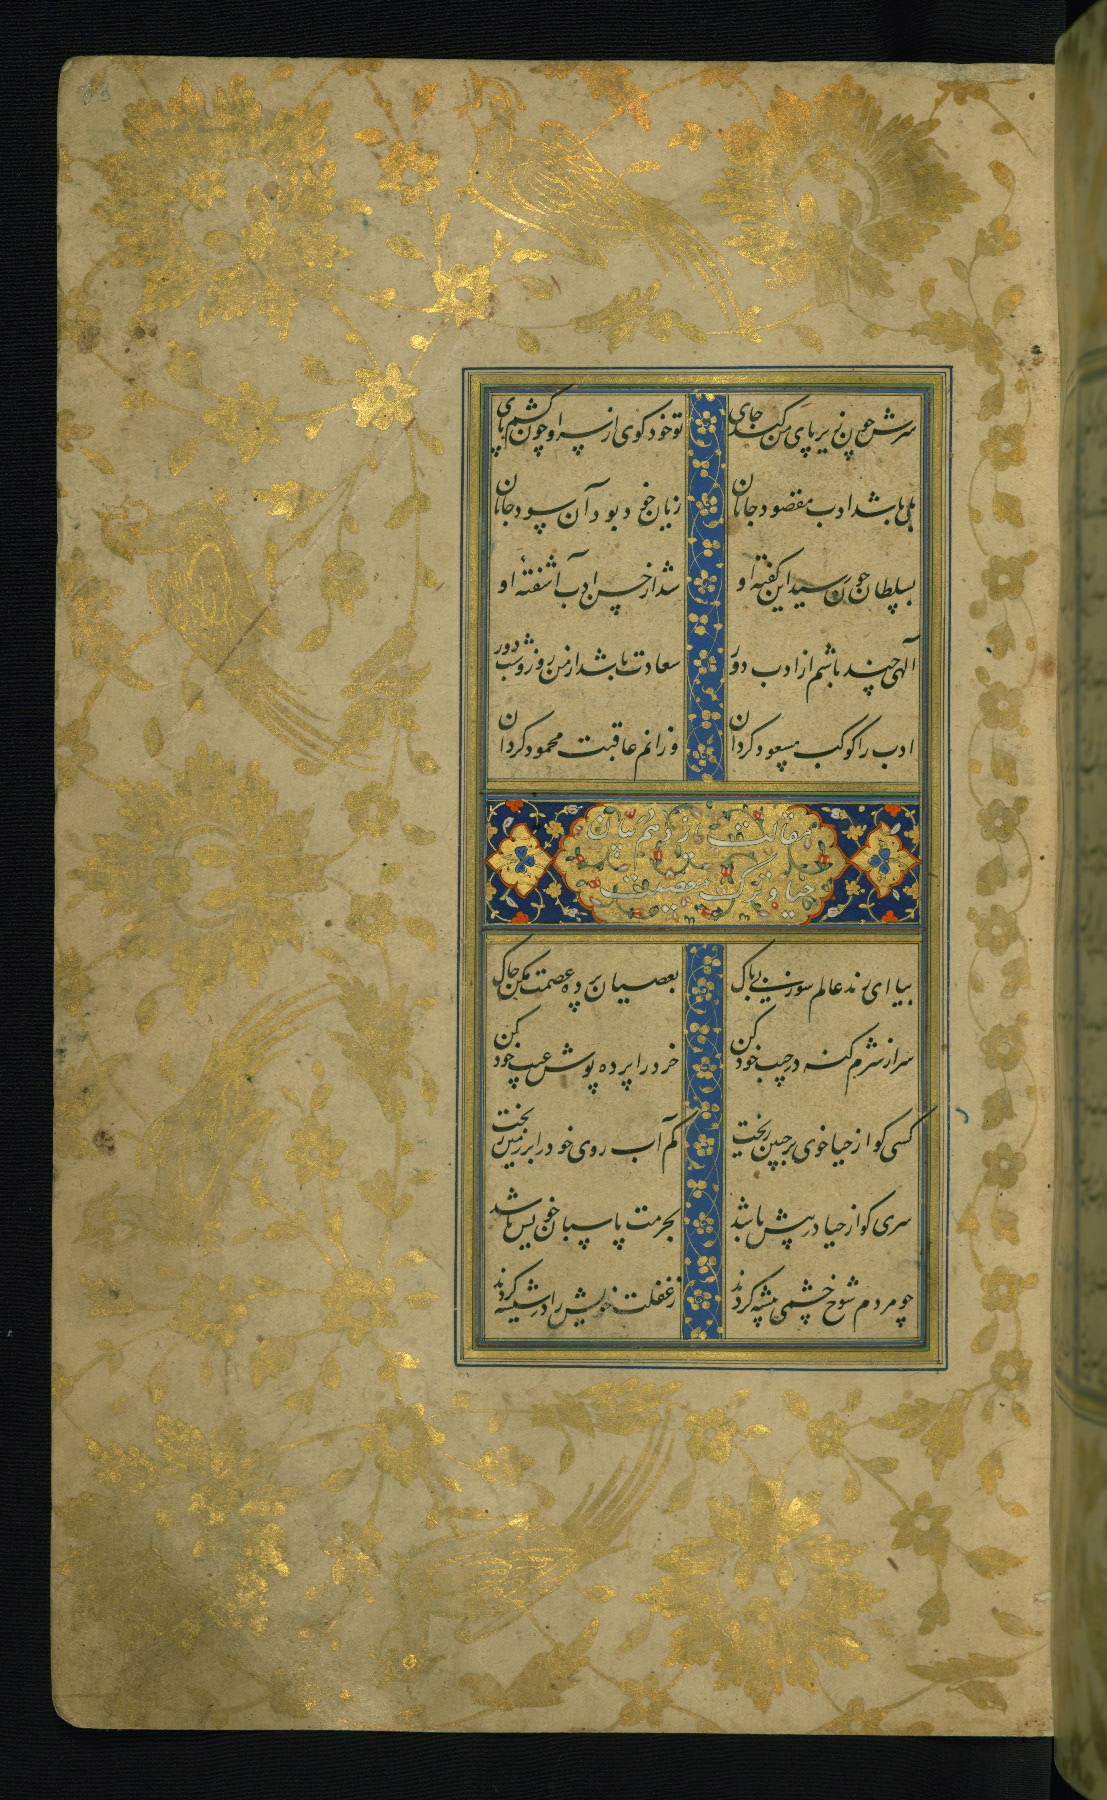 سرش چون زیر پای من کند جای تو خود کوی از سر او چون کشم پای
بلی باشد ادب مقصود جانان زیان خود بود آن سود جانان
بسلطان چون رسید این گفته او شد از حسن ادب آشفته او
الهی چند باشم از ادب دور سعادت باشد از من روز و شب دور
ادب را کوکب مسعود گردان وزانم عاقبت محمود گردان
مقالت یازدهم در بیان
حیا و ترک معصیت
بیا ای رند عالم سوز بی باک بعصیان پرده عصمت مکن چاک
سر از شرم کنه در جیب خود کن خرد را پرده پوش عیب خود کن
کسی کو از حیا خوی بر جبین ریخت کم آب روی خود را بر زمین ریخت
سری کو از حیا در پیش باشد بحرمت پاسبان خویش باشد
چو مردم شوخ چشمی پیشه کردند ز غفلت خویش را در شیشه کردند